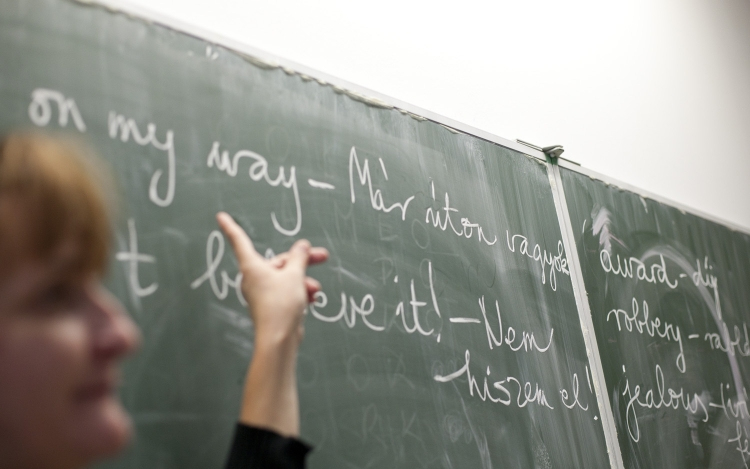 on my way – Már úton vagyok
t believe it! – Nem
hiszem el!
award – díj
robbery – rabl
jealous –